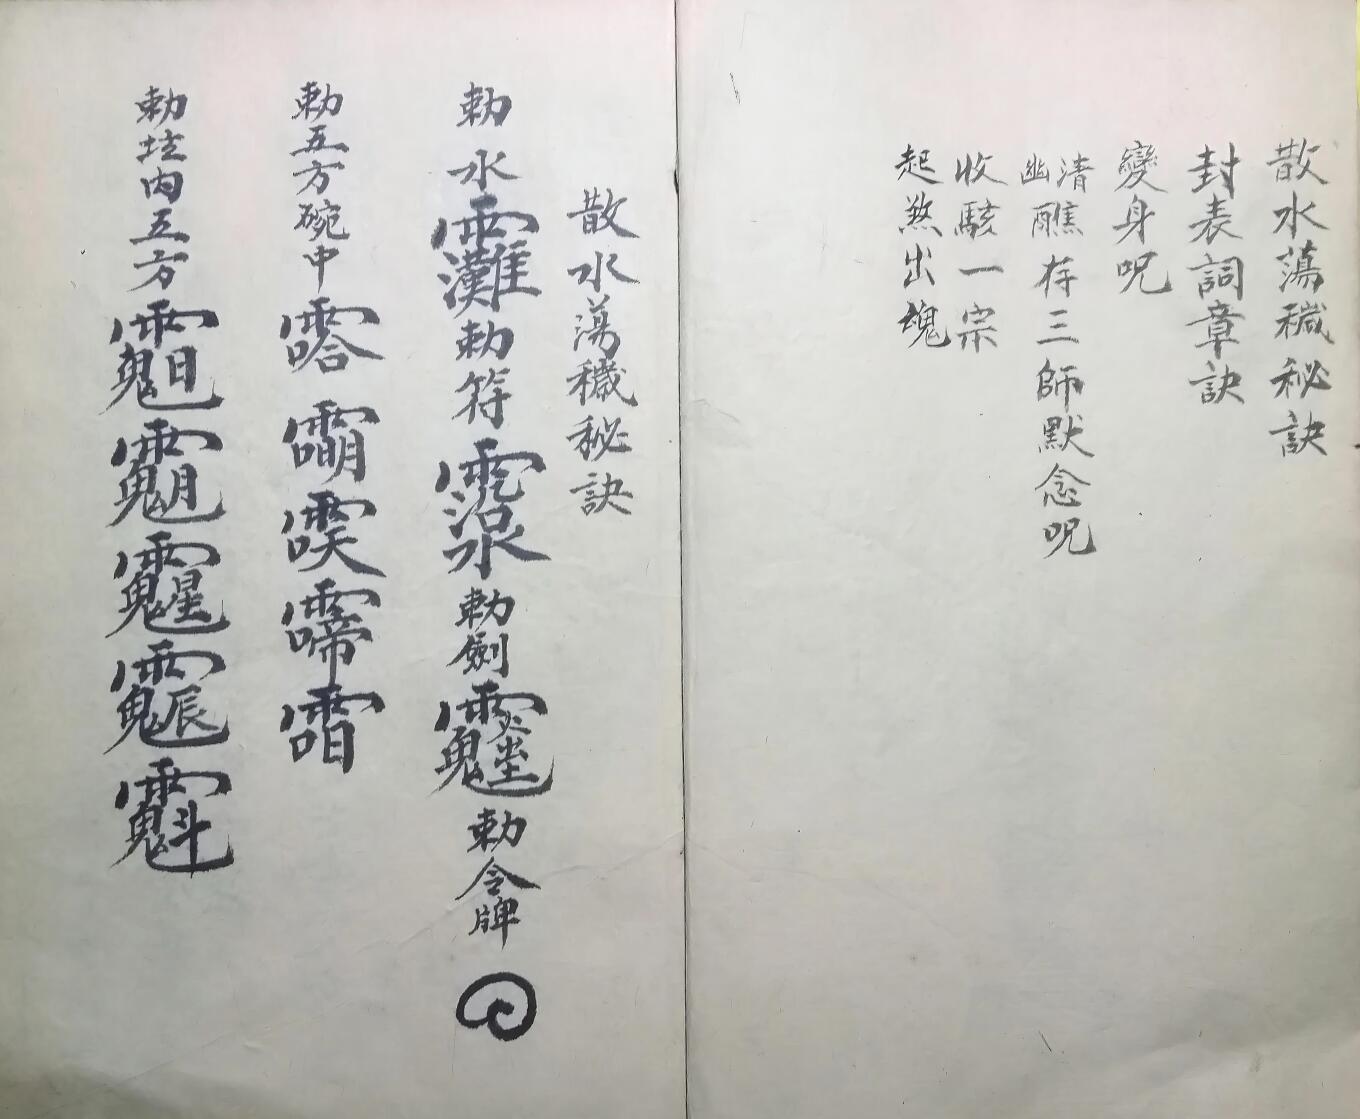 散水蕩穢秘訣
封表詞章訣
變身呪
清醮存三師默念呪
幽
收駭一宗
起煞出魂
散水蕩穢秘訣
勅水勅符勅劍勅令牌
勅五方碗中
勅坛內五方